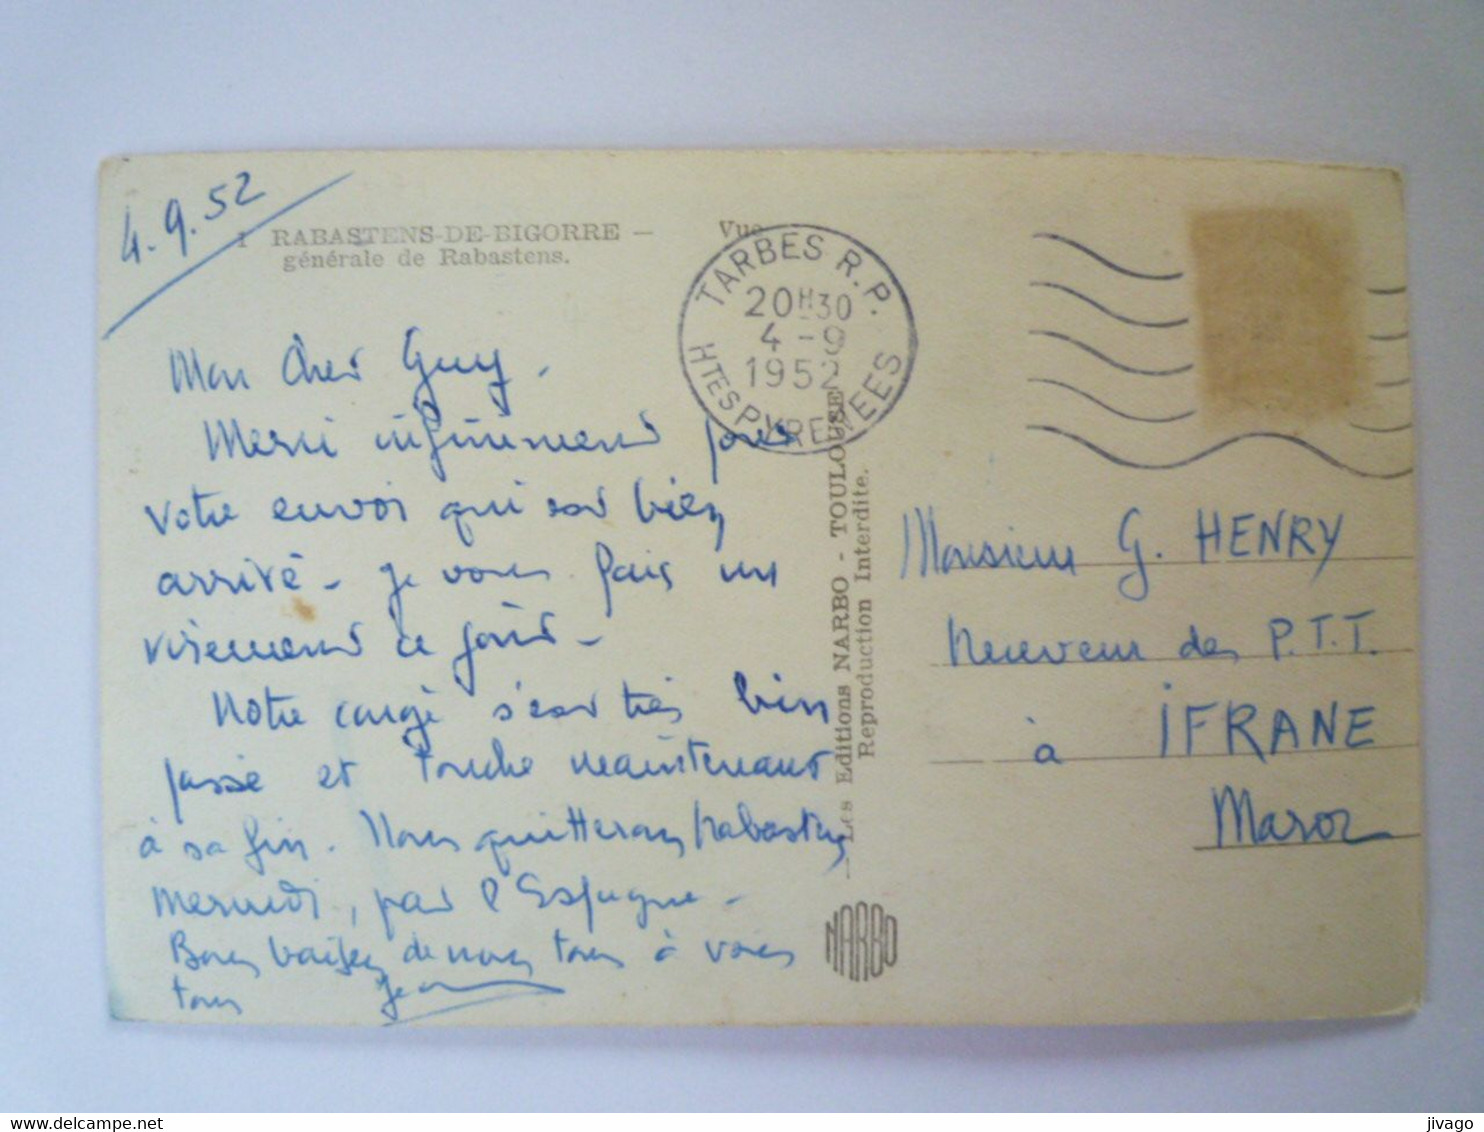 4.9.52
1 RABASTENS-DE-BIGORRE — Vue
générale de Rabastens.
TARBES R.P.
20H30
4-9
1952
HTES PYRENEES
Mon Cher Guy.
Merci infiniment pour
votre envoi qui est bien
arrivé - je vous fais un
virement ce jour -
Notre congé s'est très bien
passé et touche maintenant
à sa fin. Nous quitterons Rabastens
mercredi, par l'Espagne -
Bons baisers de nous tous à vous
tous Jean
Les Editions NARBO - TOULOUSE
Reproduction Interdite.
NARBO
Monsieur G. HENRY
Receveur des P.T.T.
à IFRANE
Maroc
delcampe.net
jivago